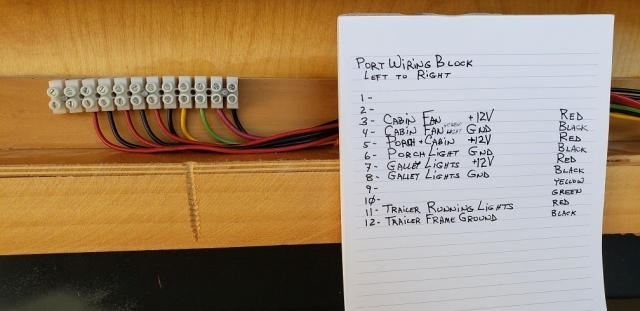 PORT WIRING BLOCK
LEFT TO RIGHT
1-
2-
3- CABIN FAN +12V RED
4- CABIN FAN GND BLACK
5- PORCH + CABIN +12V RED
6- PORCH LIGHT GND BLACK
7- GALLEY LIGHTS +12V RED
8- GALLEY LIGHTS GND BLACK
9- YELLOW
10- GREEN
11- TRAILER RUNNING LIGHTS RED
12- TRAILER FRAME GROUND BLACK